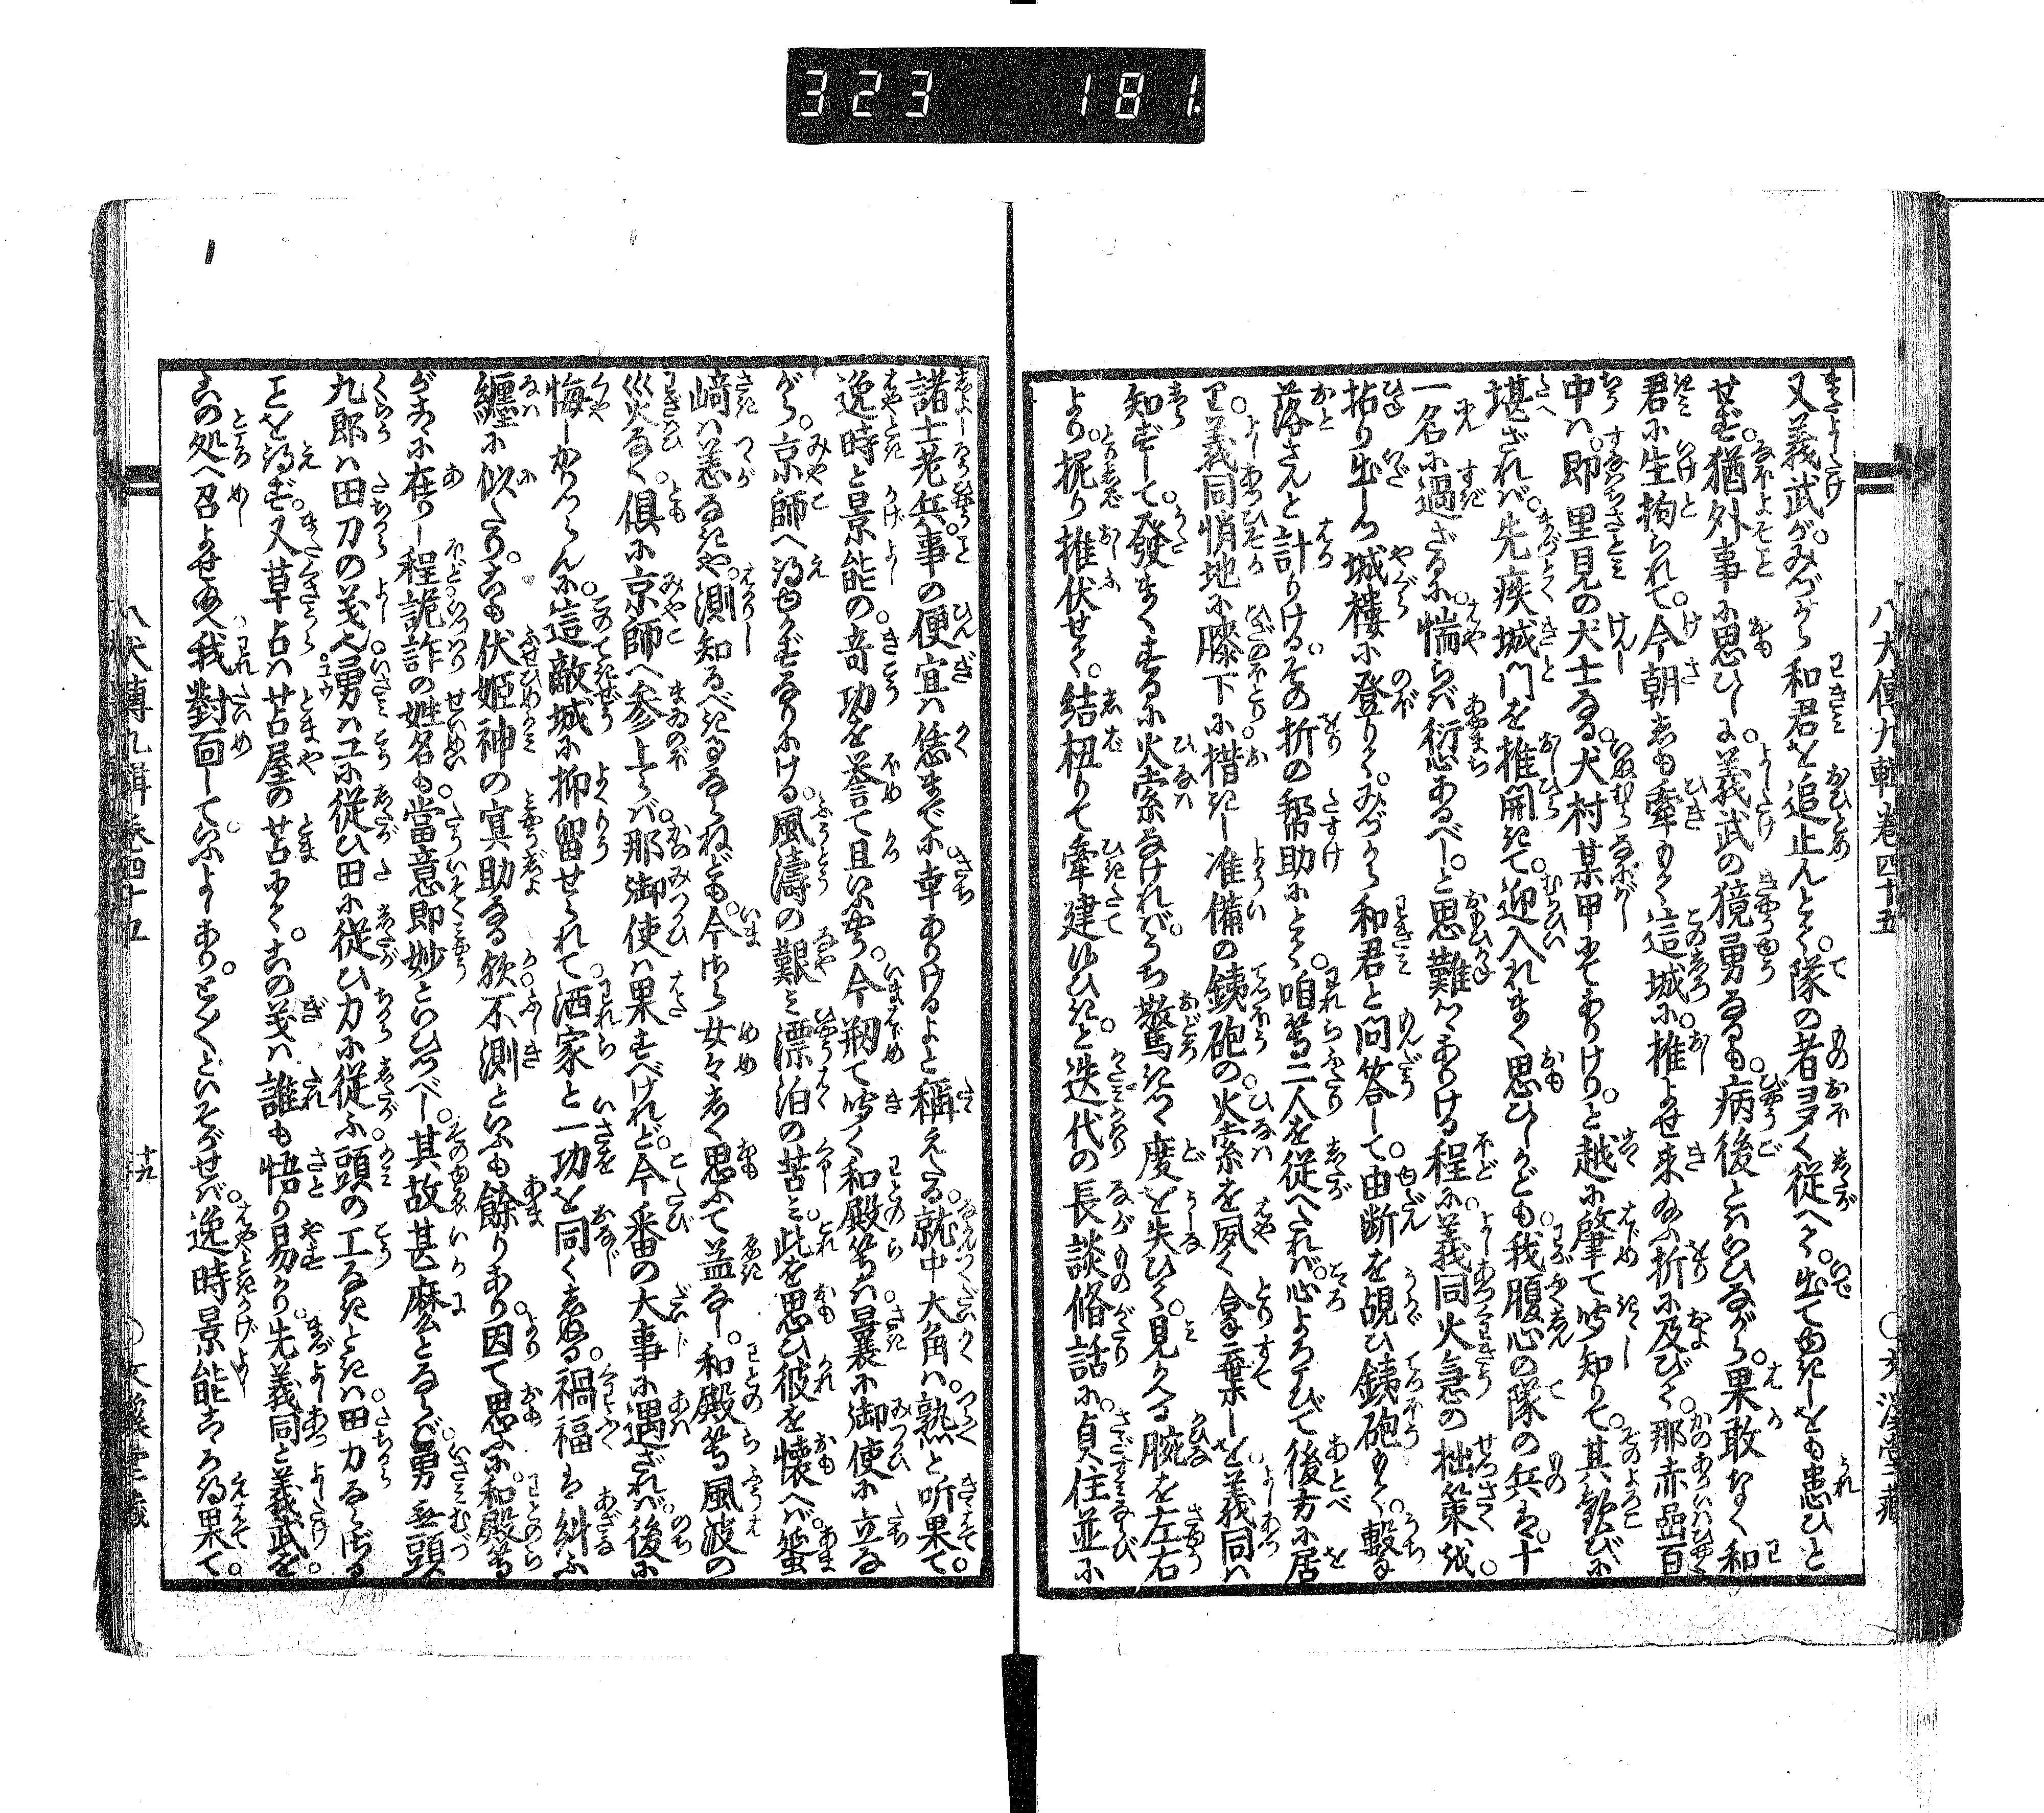 323 181
八犬傳九輯卷四十五
又義武が。みづから和君を追止んとて。隊の者夛く従へて。出てゆきしをも患ひと
せず。猶外事に思ひしに。義武の獍勇なるも。病後とはいひながら。果敢なく和
君に生拘られて。今朝しも牽もて這城に推よせ来ぬふ折に及びて。那赤嵒百
中は。即里見の犬士なる。犬村某甲にてありけり。と越に肇て吁知りて。其歓びに
堪ざれば。先疾城門を推開きて。迎入れまく思ひしかども。我腹心の隊の兵は。十
一名に過ざるに。惴らば衍あるべし。と思難てありける程に。義同火急の拙策哉。
拈り出しつ城樓に登りて。みづから和君と問答して。由断を覘ひ銕砲もて。撃も
落さんと計りける。その折の帮助にとて。咱等二人を従へたれば。心よろこびて後方に居
り。義同悄地に膝下に措きし。准備の銕砲の火索を夙く拿棄しを。義同は
知ずして。發まくするに火索なければ。うち驚きつゝ度を失ひて。見かへる腕を左右
より。捉り推伏せて。結扭りて牽建ゆひき。と迭代の長談脩話に。貞住並に
諸士老兵。事の便宜は恁までに。幸ありけるよと稱えたる。就中大角は。熟〻と听果て。
逸時と景能の。竒功を譽て且いふやう。今刱て吁く和殿等は。曩に御使に立な
がら。京師へ得ゆかずなりにける。風濤の艱〻漂泊の苦〻。此を思ひ彼を懐へば。蜑
﨑は恙なきや。測知るべきならねども。今さら女〻しく思ふて益なし。和殿等風波の
災なく。俱に京師へ参上らば。那御使は果すべけれど。今番の大事に遇ざれば。後に
悔しかりつらんに。這敵城に抑留せられて。洒家と一功を同くしぬる。禍福は糾ふ
纏に似たり。こも伏姫神の冥助なる歟。不測といふも餘りあり。因て思ふに。和殿等
がこゝに在りし程詭詐の姓名も。當意即妙といひつべし。其故甚麽とならば。勇無頭
九郎は田刀の義也。勇はユに従ひ田に従ひ力に従ふ。頭の工なきときは。田力ならざる
ことを得ず。又草占は苫屋の苫にて。この義は誰も悟り易かり。先義同と義武を
この処へ召よせぬへ。我對面していふよしあり。とく〳〵といそがせば。逸時景能こゝろ得果て。
八犬傳九輯卷四十五
十九